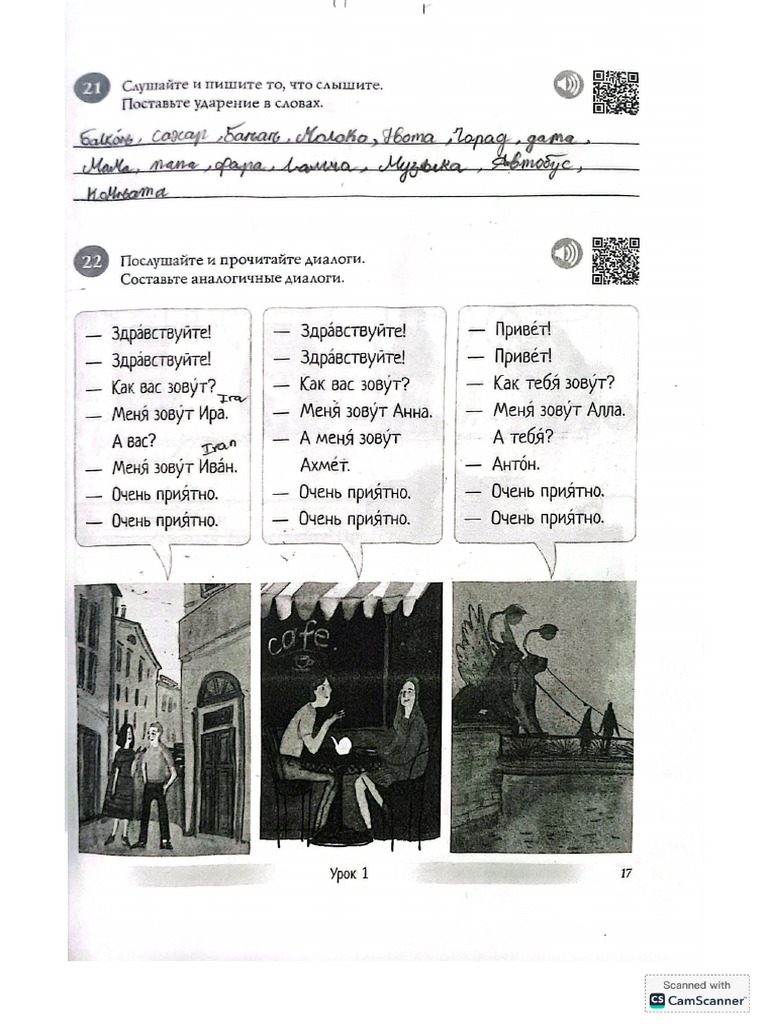 21 Слушайте и пишите то, что слышите.
Поставьте ударение в словах.
балко́нь, сахар, Банань, Молоко, Нвота, Чорад, дата,
Мама, папа, фара, Ламма, Музыка, Автобус,
комньата
22 Послушайте и прочитайте диалоги.
Составьте аналогичные диалоги.
— Здра́вствуйте!
— Здра́вствуйте!
— Как вас зову́т?
Ira
— Меня́ зову́т Ира.
А вас?
Ivan
— Меня́ зову́т Ива́н.
— Очень прия́тно.
— Очень прия́тно.
— Здра́вствуйте!
— Здра́вствуйте!
— Как вас зову́т?
— Меня́ зову́т Анна.
— А меня́ зову́т
Ахме́т.
— Очень прия́тно.
— Очень прия́тно.
— Приве́т!
— Приве́т!
— Как тебя́ зову́т?
— Меня́ зову́т Алла.
А тебя́?
— Анто́н.
— Очень прия́тно.
— Очень прия́тно.
cafe
Урок 1
17
Scanned with
CS CamScanner